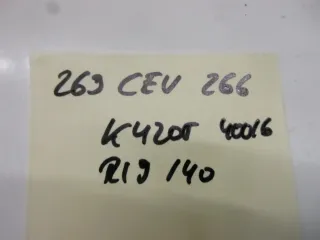 269 CEV 266
K420T 40016
R19 140